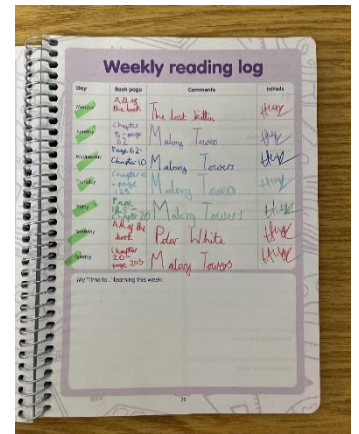 Weekly reading log
Day Book page Comments Initials
Monday All of the book The lost kitten
Tuesday Chapter 5 - page 62 Malory Towers
Wednesday Page 62 - Chapter 10 Malory Towers
Thursday Chapter 10 - page 125 Malory Towers
Friday Page 125 - Chapter 20 Malory Towers
Saturday All of the book Polar White
Sunday Chapter 20 - page 203 Malory Towers
My 'Time to...' learning this week: